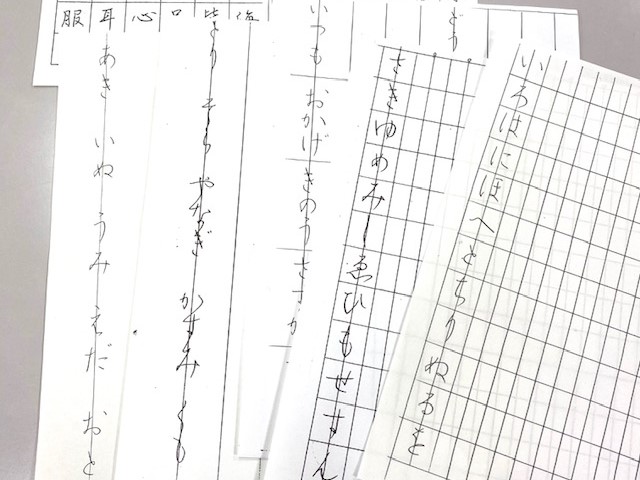 いろはにほへとちりぬるを
さきゆめみしゑひもせすん
どう
いつも おかげ きのう
とり そら やなぎ かすみ
あき いぬ うみ えだ おと
口 心 耳 服